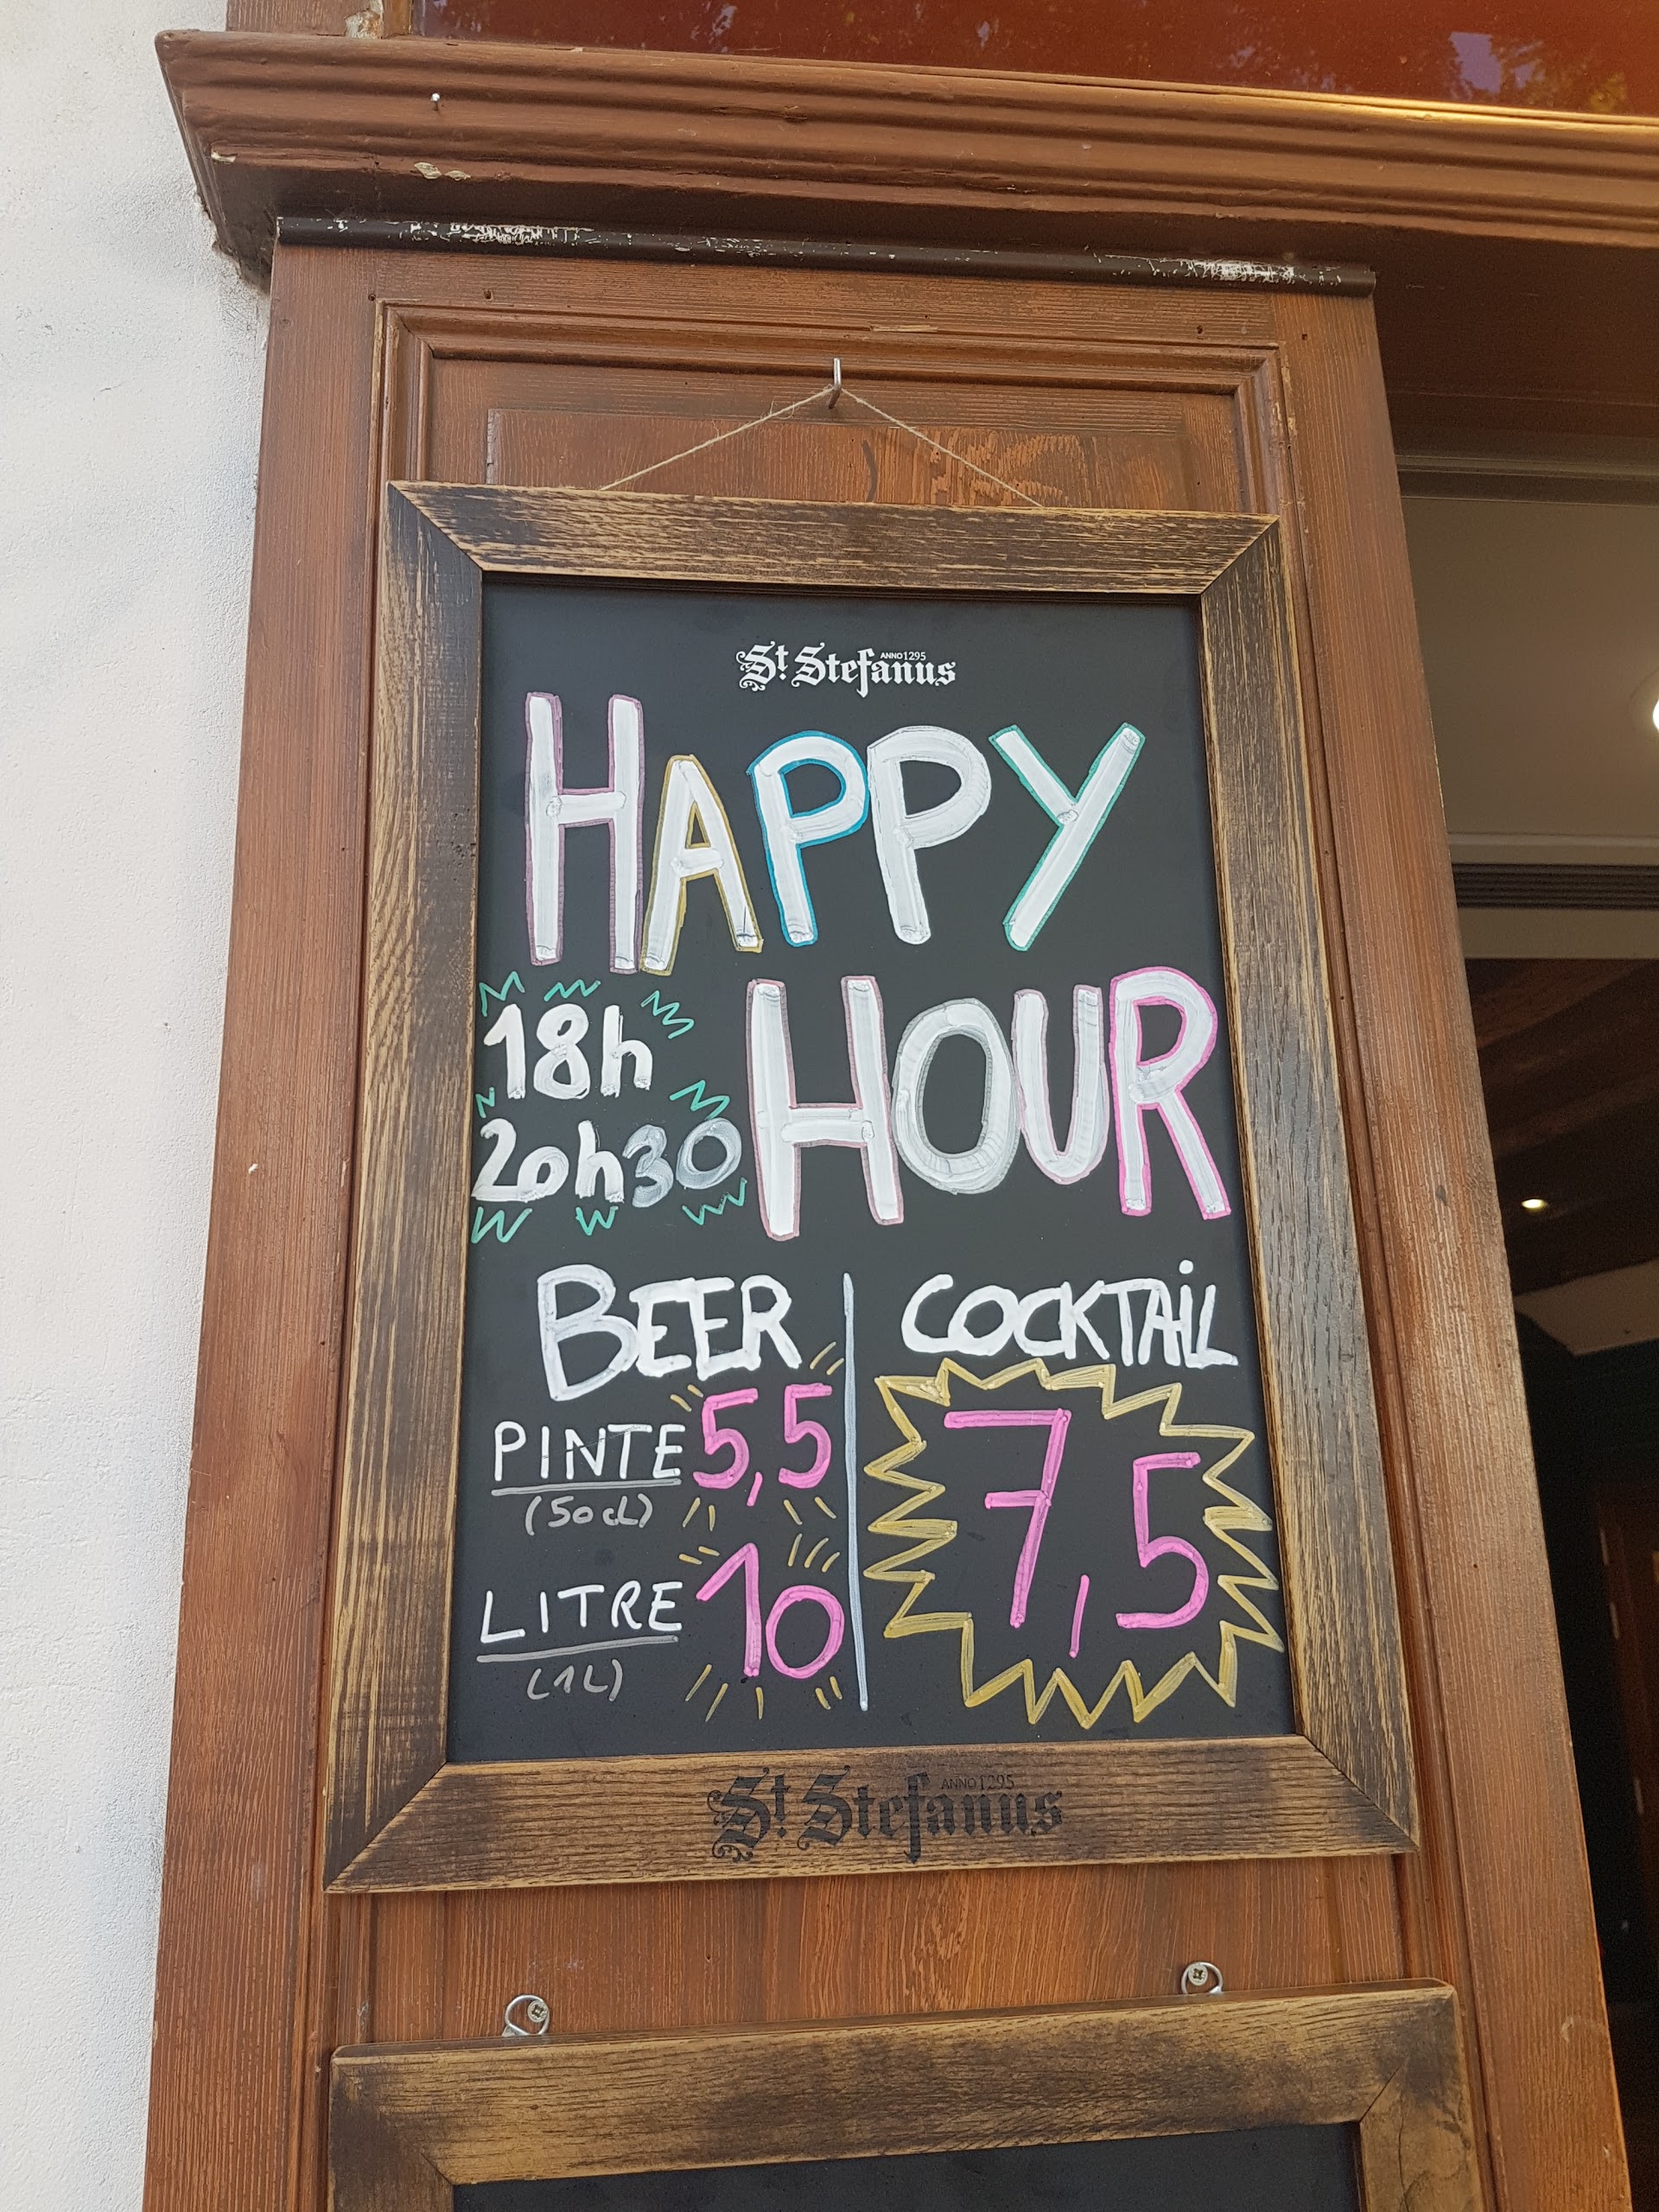 St Stefanus ANNO 1295
HAPPY
HOUR
18h
20h30
BEER
PINTE 5,5
(50cl)
LITRE 10
(1L)
COCKTAiL
7,5
St Stefanus ANNO 1295